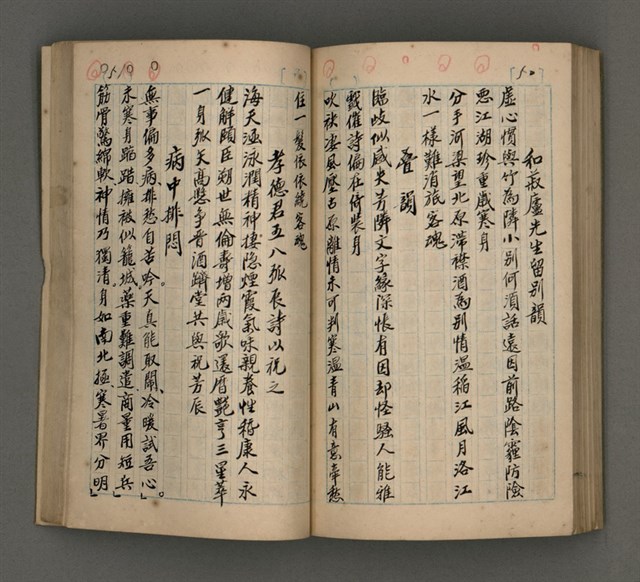 和菽廬先生留別韻
虛心慣與竹為隣小別何須話遠因前路陰霾防險
惡江湖珍重戲寒身
分手河梁望北原滯襟酒為別情溫稻江風月洛江
水一樣難消旅客魂
疊韻
臨歧似感失芳隣文字緣深悵有因却怪騷人能雅
戲催詩偏在何裝身
吹袂凄風壓古原離情未可判寒溫青山有意牽愁
住一髮依依繞客魂
孝德君五八弧辰詩以祝之
海天涵泳潤精神棲隱煙霞氣味親養性稱康人永
健解頤臣朔世無倫壽增兩歲歌還曆艷享三星萃
一身弧矢高懸爭晉酒躋堂共與祝芳辰
病中排悶
無事偏多病排愁自苦吟天真能取鬧冷暖試吾心
未寒身跼蹐擁被似籠城藥重難調遣商量用短兵
筋骨驚綿軟神情乃獨清身如南北極寒暑界分明